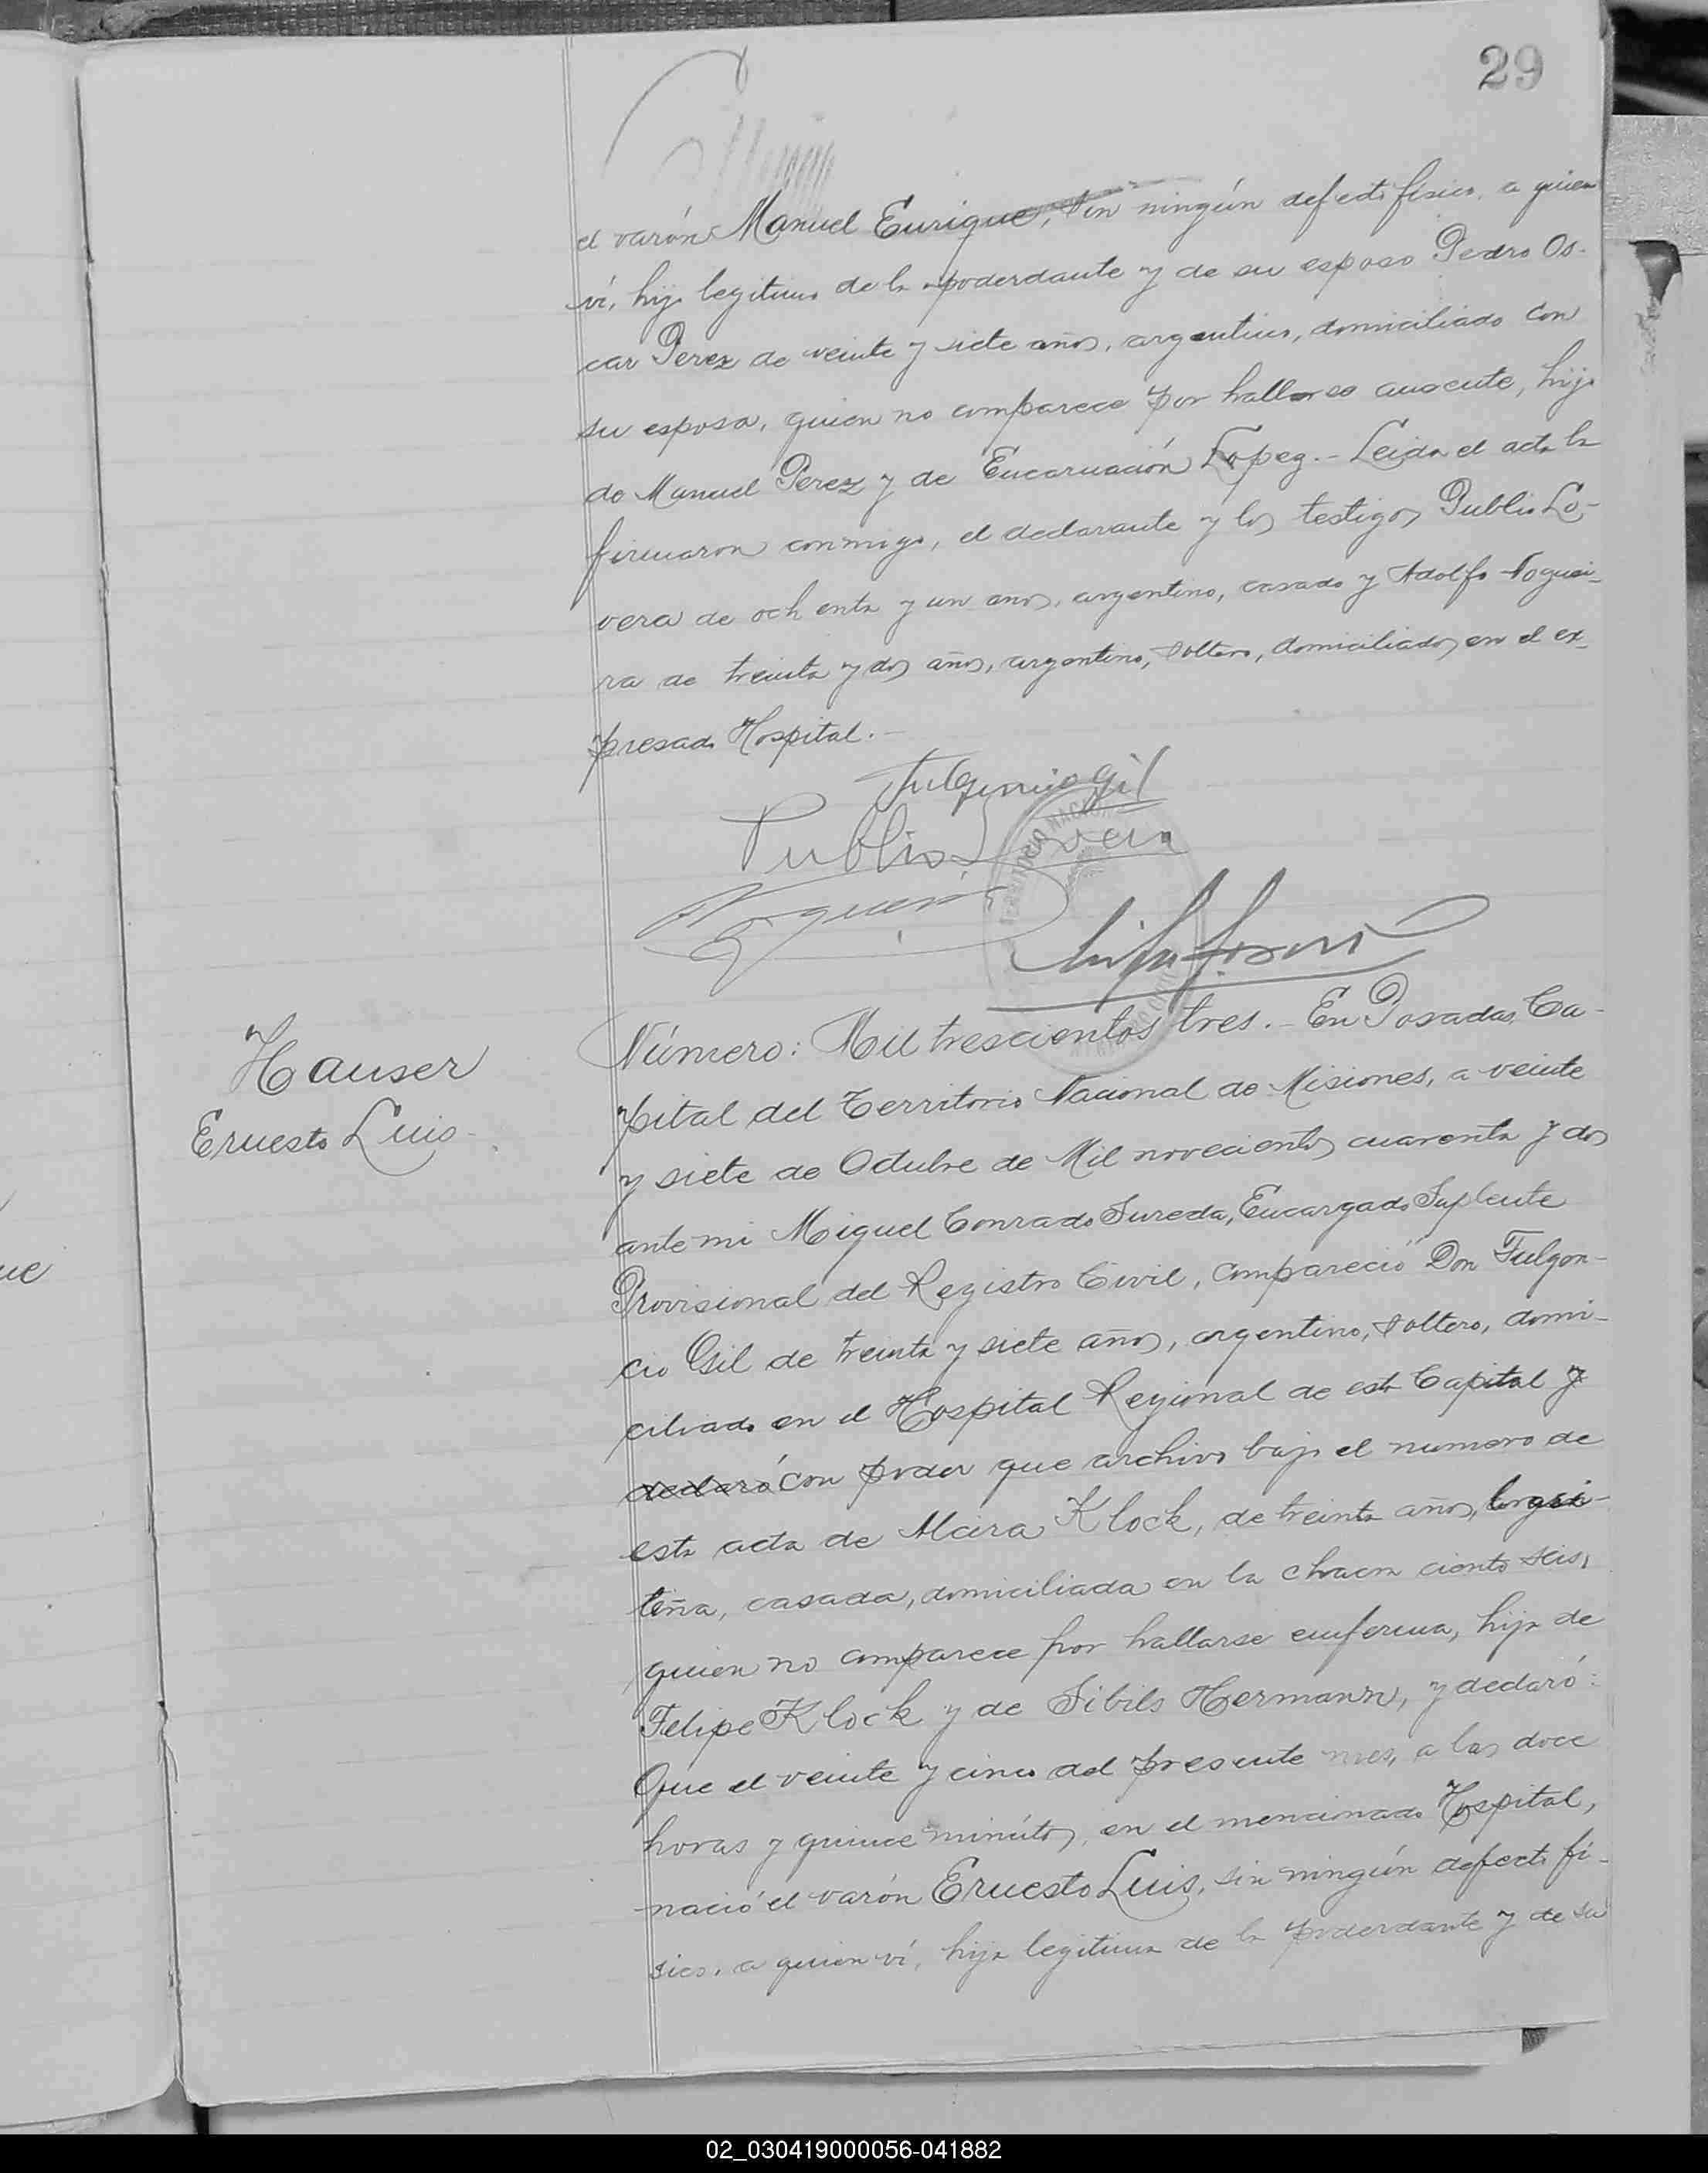 29
el varón Manuel Enrique, sin ningún defecto físico, a quien
ví, hijo legitimo de la poderdante y de su esposo Pedro Os-
car Perez de veinte y siete años, argentino, domiciliado con
su esposa, quien no comparece por hallarse ausente, hijo
de Manuel Perez y de Encarnación Lopez.- Leida el acta la
firmaron conmigo, el declarante y los testigos Publio Lo-
vera de ochenta y un anos, argentino, casado y Adolfo Noguei-
ra de treinta y dos años, argentino, soltero, domiciliados en el ex-
presado Hospital.-
Fulgencio Gil
Publio Lovera
Nogueira
REGISTRO NACIONAL
Hauser
Ernesto Luis-
Número: Mil trescientos tres.- En Posadas, Ca-
pital del Territorio Nacional de Misiones, a veinte
y siete de Octubre de Mil novecientos cuarenta y dos
ante mi Miguel Conrado Sureda, Encargado Suplente
Provisional del Registro Civil, compareció Don Fulgen-
cio Gil de treinta y siete años, argentino, soltero, domi-
ciliado en el Hospital Regional de esta Capital y
declaró con poder que archivo bajo el numero de
esta acta de Alcira Klock, de treinta años, brasi-
leña, casada, domiciliada en la chacra ciento seis,
quien no comparece por hallarse enferma, hija de
Felipe Klock y de Sibils Hermann, y declaró:
Que el veinte y cinco del presente mes, a las doce
horas y quince minútos, en el mencionado Hospital,
nació el varón Ernesto Luis, sin ningún defecto fí-
sico, a quien ví, hijo legitimo de la poderdante y de su
ue
02_030419000056-041882